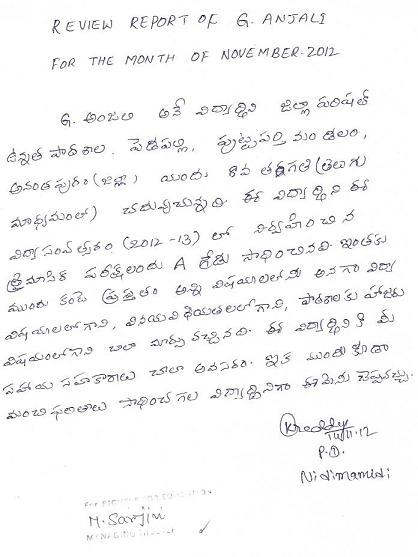 REVIEW REPORT OF G. ANJALI
FOR THE MONTH OF NOVEMBER-2012
G. అంజలి అనే విద్యార్థిని జిల్లా పరిషత్
ఉన్నత పాఠశాల, పెడపల్లి, పుట్టపర్తి మండలం,
అనంతపురం (జిల్లా) యందు 8వ తరగతి (తెలుగు
మాధ్యమంలో) చదువుచున్నది. ఈ విద్యార్థిని ఈ
విద్యా సంవత్సరం (2012-13) లో నిర్వహించిన
త్రైమాసిక పరీక్షలందు A గ్రేడు సాధించినది. ఇంతకు
ముందు కంటే ప్రస్తుతం అన్ని విషయాలలోను అనగా విద్యా
విషయాలలోగాని, వినయవిధేయతలలోగాని, పాఠశాలకు హాజరు
విషయంలోగాని చాలా మార్పు వచ్చినది. ఈ విద్యార్థినికి మీ
సహాయ సహకారాలు చాలా అవసరం. ఇక ముందు కూడా
మంచి ఫలితాలు సాధించగల విద్యార్థినిగా ఈమెను చెప్పవచ్చు.
Kreddy
14/11.12
P.D.
Nidimamidi
For
M. Sarjini
MANAGING